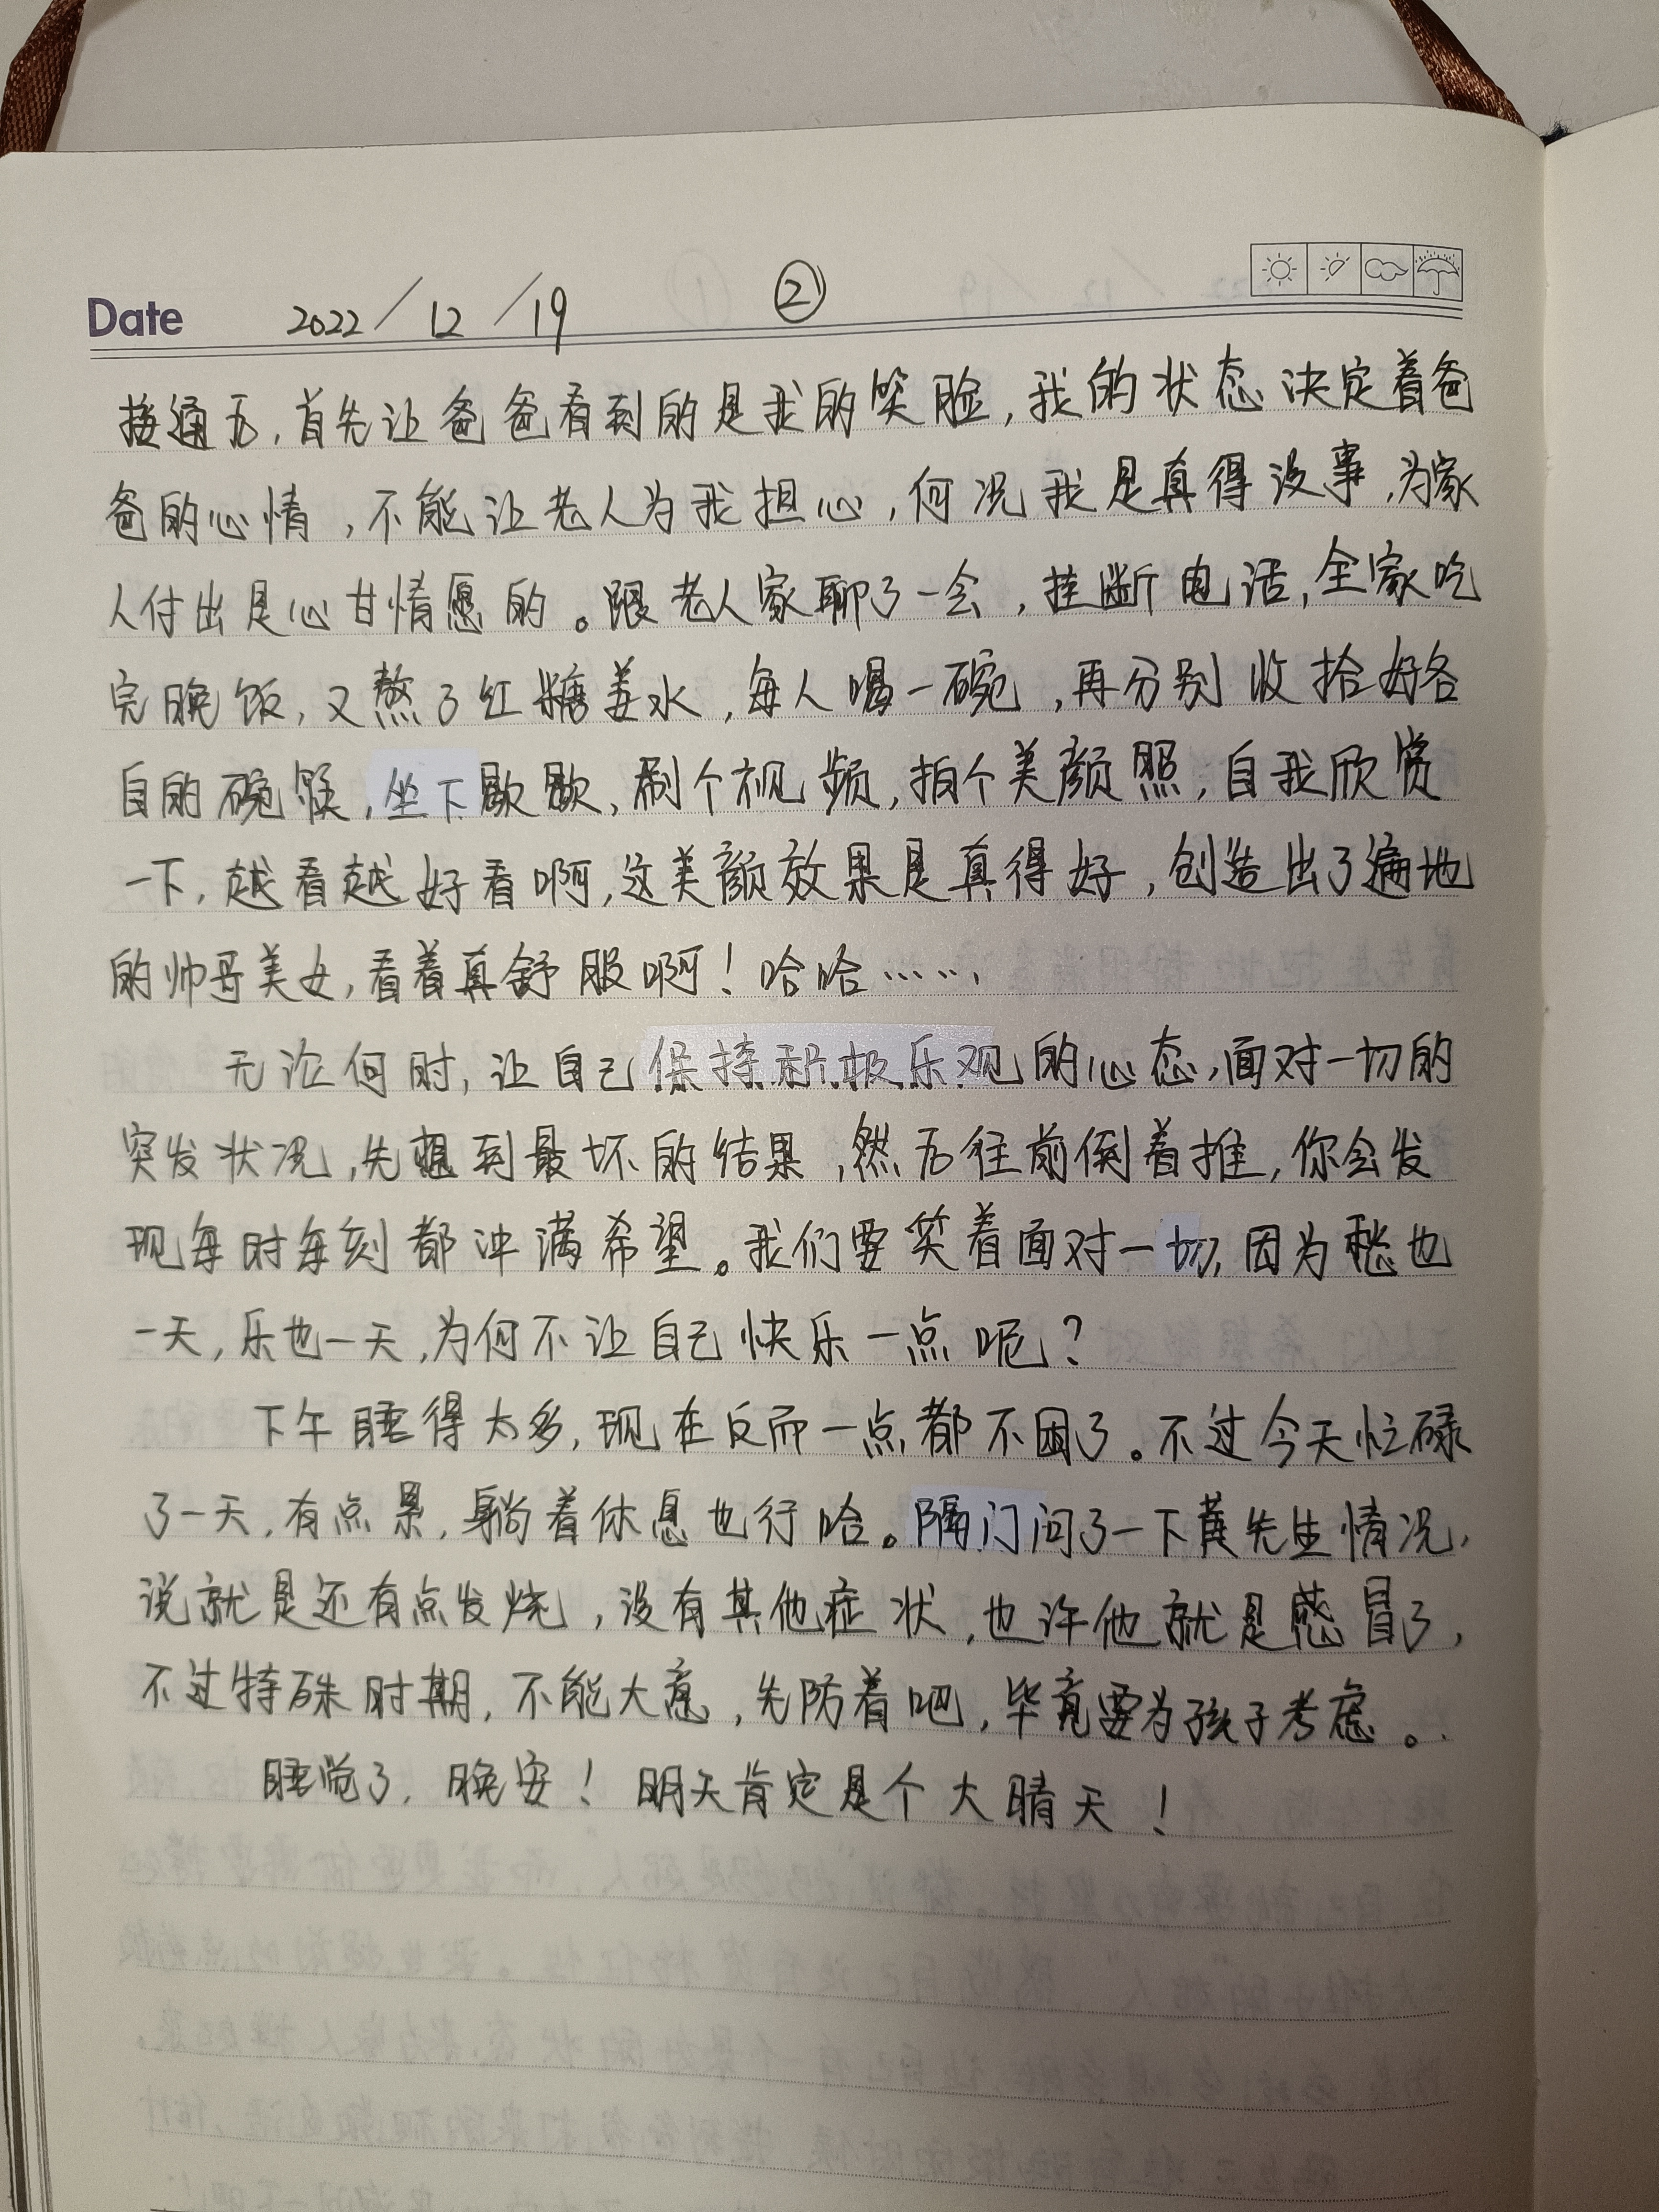 Date 2022/12/19 ②
接通后,首先让爸爸看到的是我的笑脸,我的状态决定着爸
爸的心情,不能让老人为我担心,何况我是真得没事,为家
人付出是心甘情愿的。跟老人家聊了一会,挂断电话,全家吃
完晚饭,又熬了红糖姜水,每人喝一碗,再分别收拾好各
自的碗筷,坐下歇歇,刷个视频,拍个美颜照,自我欣赏
一下,越看越好看啊,这美颜效果是真得好,创造出了遍地
的帅哥美女,看着真舒服啊!哈哈……
无论何时,让自己保持积极乐观的心态,面对一切的
突发状况,先想到最坏的结果,然后往前倒着推,你会发
现每时每刻都冲满希望。我们要笑着面对一切,因为愁也
一天,乐也一天,为何不让自己快乐一点呢?
下午睡得太多,现在反而一点都不困了。不过今天忙碌
了一天,有点累,躺着休息也行哈。隔门问了一下黄先生情况,
说就是还有点发烧,没有其他症状,也许他就是感冒了,
不过特殊时期,不能大意,先防着吧,毕竟要为孩子考虑。
睡觉了,晚安!明天肯定是个大晴天!